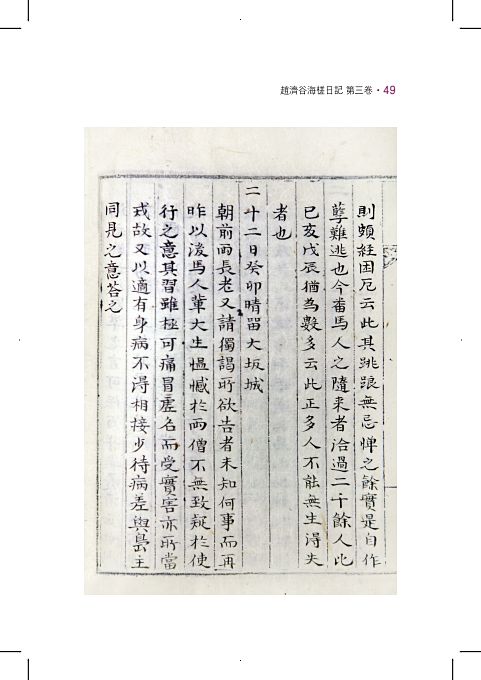 趙濟谷海槎日記 第三卷 · 49
則頻經困厄云此其跳踉無忌憚之餘實是自作
孽難逃也今番馬人之隨来者洽過二千餘人比
已亥戊辰猶爲數多云此正多人不能無生得失
者也
二十二日癸卯晴留大坂城
朝前兩長老又請獨謁所欲告者未知何事而再
昨以後馬人輩大生慍憾於兩僧不無致疑於使
行之意其習雖極可痛冒虛名而受實害亦所當
戒故又以適有身病不得相接少待病差與島主
同見之意答之